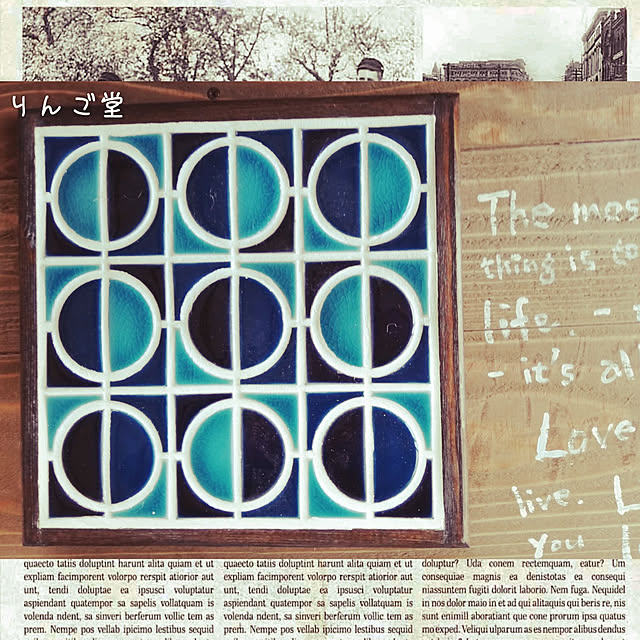 りんご堂
The mos
thing is to
life. -
- it's al
Love
live. L
you
quaecto tatiis doluptint harunt alita quiam et ut
expliam facimporent volorpo rerspit atiorior aut
unt, tendi doluptae ea ipsusci voluptatur
aspiendant quatempor sa sapelis vollatquam is
volenda ndent, to similibus se volum estrunt
sundus, sum sinciri berferum vollic tem as
prem. Nempe pos vellab ipicimo lestibus sequi
quaecto tatiis doluptint harunt alita quiam et ut
expliam facimporent volorpo rerspit atiorior aut
unt, tendi doluptae ea ipsusci voluptatur
aspiendant quatempor sa sapelis vollatquam is
doluptur? Uda conem rectemquam, eatur? Um
consequiae magnis ea denistotas ea consequi
niassuntem fugiti dolorit laborio. Nem fuga. Nequidel
in nos dolor maio in et ad qui alitaquis qui beris re, nis
sunt enimill aboratiant que cone prorum ipsa quatus